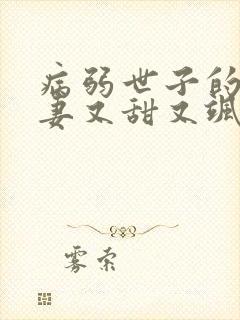 病弱世子的
妻又甜又飒
雾索